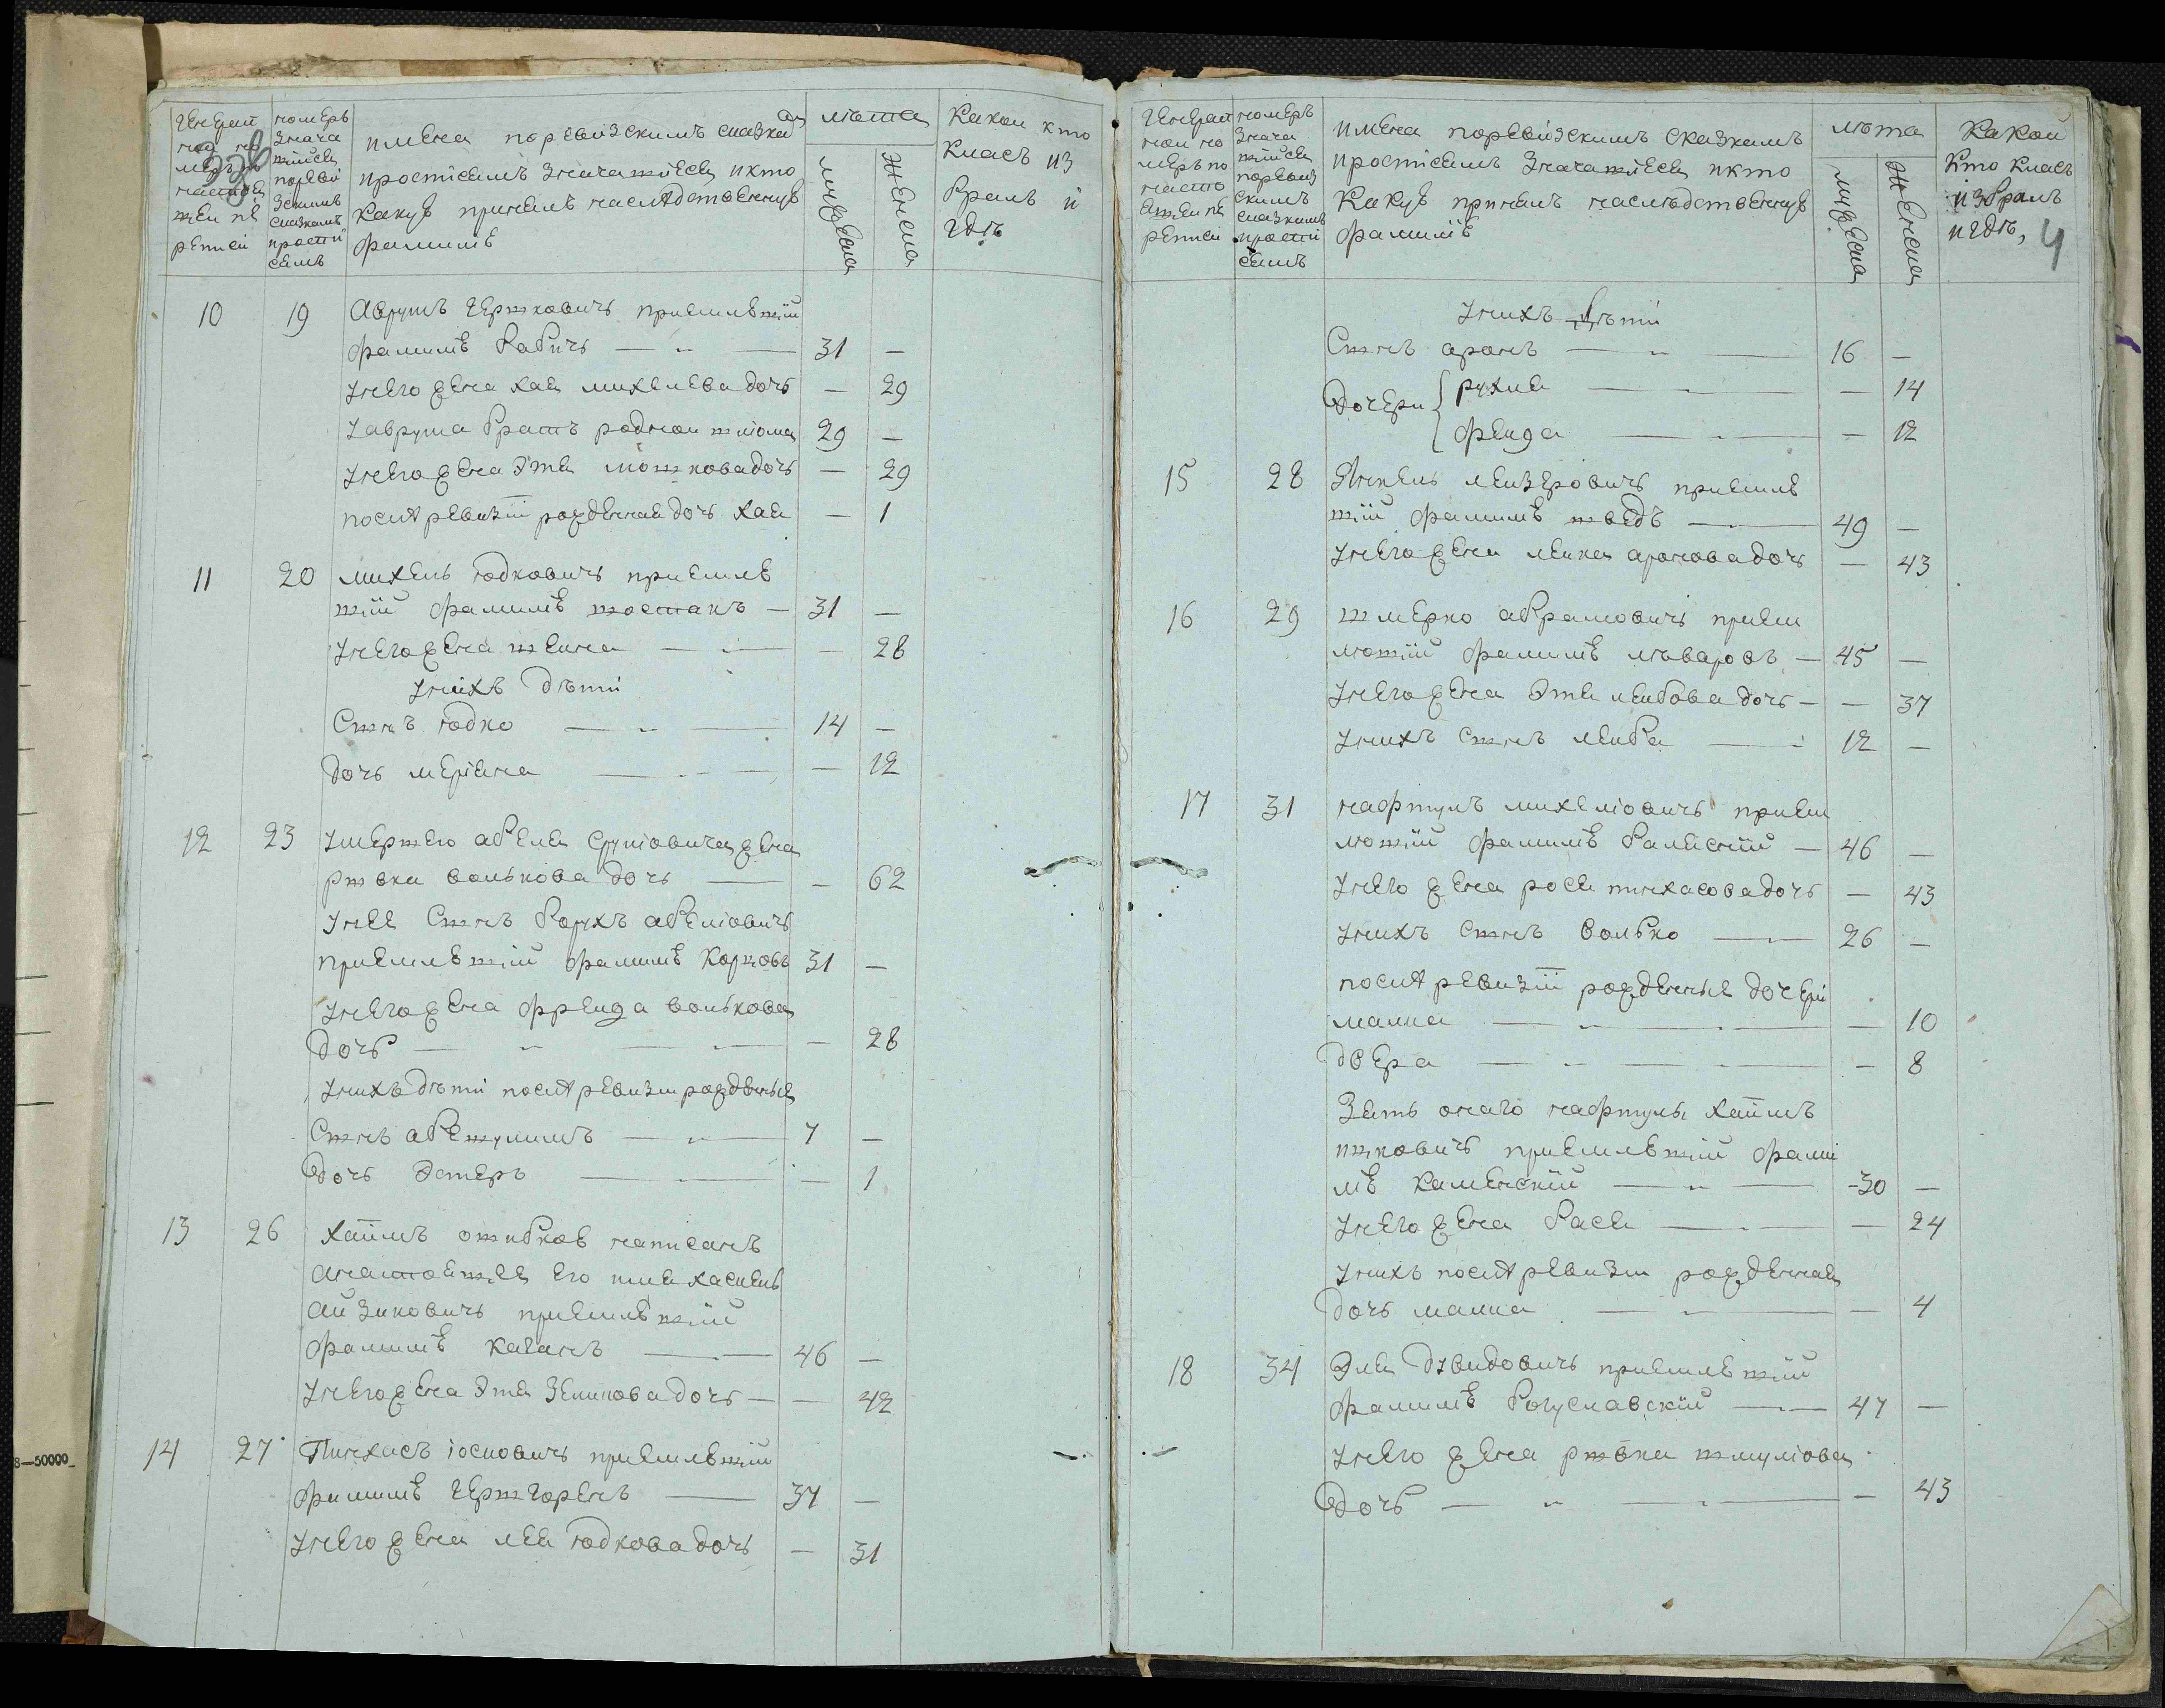 Генерал
ной но
меръ по
настоя
щеи пе
реписи
номеръ
Значa
щійся
поревиз
Зскимъ
сказкамъ
простія
селъ
имена поревизскимъ сказкамъ
простіемъ Значащіеся икто
Какую принелъ наслѣдственную
Фамилію
лѣта
мужеска
Женска
Какои кто
Класъ из
бралъ и
гдѣ
10 19 Аврумъ Гершковичъ приемлевшій
Фамилію Рабичъ — „ — 31 —
Унего жена хая михелева дочь — 29
Уаврума братъ родной шліома 29 —
Унего жена Этя мошкова дочь — 29
послѣ ревизіи рожденная дочь хая — 1
11 20 михель юдковичъ приемлев
шій фамилію шостакъ — 31 —
Унего жена шейна — — 28
Унихъ дѣти
Сынъ юдко — „ — 14 —
дочь меріяна — „ — — 12
12 23 Умершего абеля Сруліовича жена
ривка волькова дочь — — 62
Унее Сынъ борухъ абеліовичъ
приемлевшій фамилію Карповъ 31 —
Унего жена Фрейда волькова
дочь — „ — — 28
Унихъ дѣти послѣ ревизіи рожденые
Сынъ абешулимъ — „ — 7 —
дочь Эстеръ — — 1
13 26 хаимъ ошибкою написанъ
анастоящее его имя хаскель
айзиковичъ приемлевшій
Фамилію каганъ — 46 —
Унего жена Этя Зеликова дочь — — 42
14 27 Пинхасъ іосиовичъ приемлевшій
Фамилію Гершгоренъ — 37 —
Унего жена лея юдкова дочь — 31
Генерал
ной но
меръ по
насто
ящеи пе
реписи
номеръ
Значa
щійся
поревиз
скимъ
сказкамъ
простія
семъ
имена поревизскимъ сказкамъ
простіемъ Значащіеся икто
Какую принелъ наслѣдственную
Фамилію
лѣта
мужеска
Женска
Какои
Кто класъ
избралъ
и гдѣ,
4
Унихъ дѣти
Сынъ аронъ — „ — 16 —
дочери { рухля — — 14
фейга — „ — — 12
15 28 Янкель лейзеровичъ приемлев
шій фамилію шведъ — 49 —
Унего жена лейка аронова дочь — 43
16 29 шмерко абрамовичъ прием
лющій фамилію лѣваровъ — 45 —
Унего жена Этя лейбова дочь — — 37
Унихъ Сынъ лейба — 12 —
17 31 нафтулъ михеліовичъ прием
лющій фамилію балясній — 46 —
Унего жена рося пинхасова дочь — 43
Унихъ Сынъ волько — 26 —
послѣ ревизіи рожденные дочери
малка — „ — — 10
двера — „ — — 8
Зять онаго нафтулы хаимъ
ицковичъ приемлевшій фами
лію Каменскій — „ — 30 —
Унего жена бася — — 24
Унихъ послѣ ревизіи рожденная
дочь малка — — 4
18 34 Эля дувидовичъ приемлевшій
Фамилію богуславскій — 47 —
Унего жена ривка шмуліова
дочь — „ — — 43
8—50000